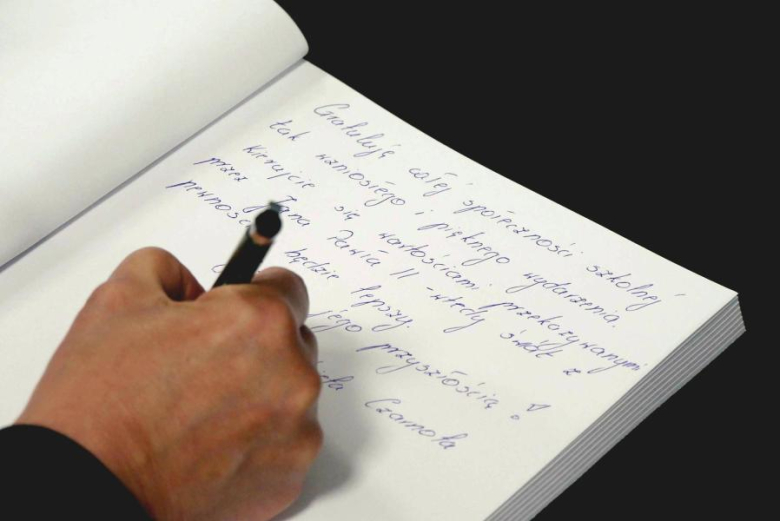 Gratuluję całej społeczności szkolnej
tak wzniosłego i pięknego wydarzenia.
Kierujcie się wartościami przekazywanymi
przez Jana Pawła II - wtedy świat z
pewnością będzie lepszy.
jego przyszłością!
Czarnota